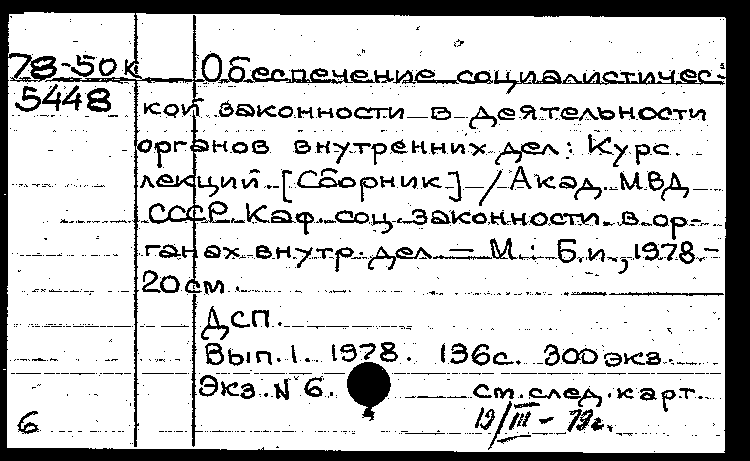 78-50к Обеспечение социалистичес-
5448 кой законности в деятельности
органов внутренних дел: Курс
лекций. [Сборник] / Акад. МВД
СССР. Каф. соц. законности в ор-
ганах внутр. дел. — М.: Б.и., 1978.-
20см.
ДСП.
Вып. 1. 1978. 136с. 300экз.
Экз. N 6. см. след. карт.
6 19/III - 79г.